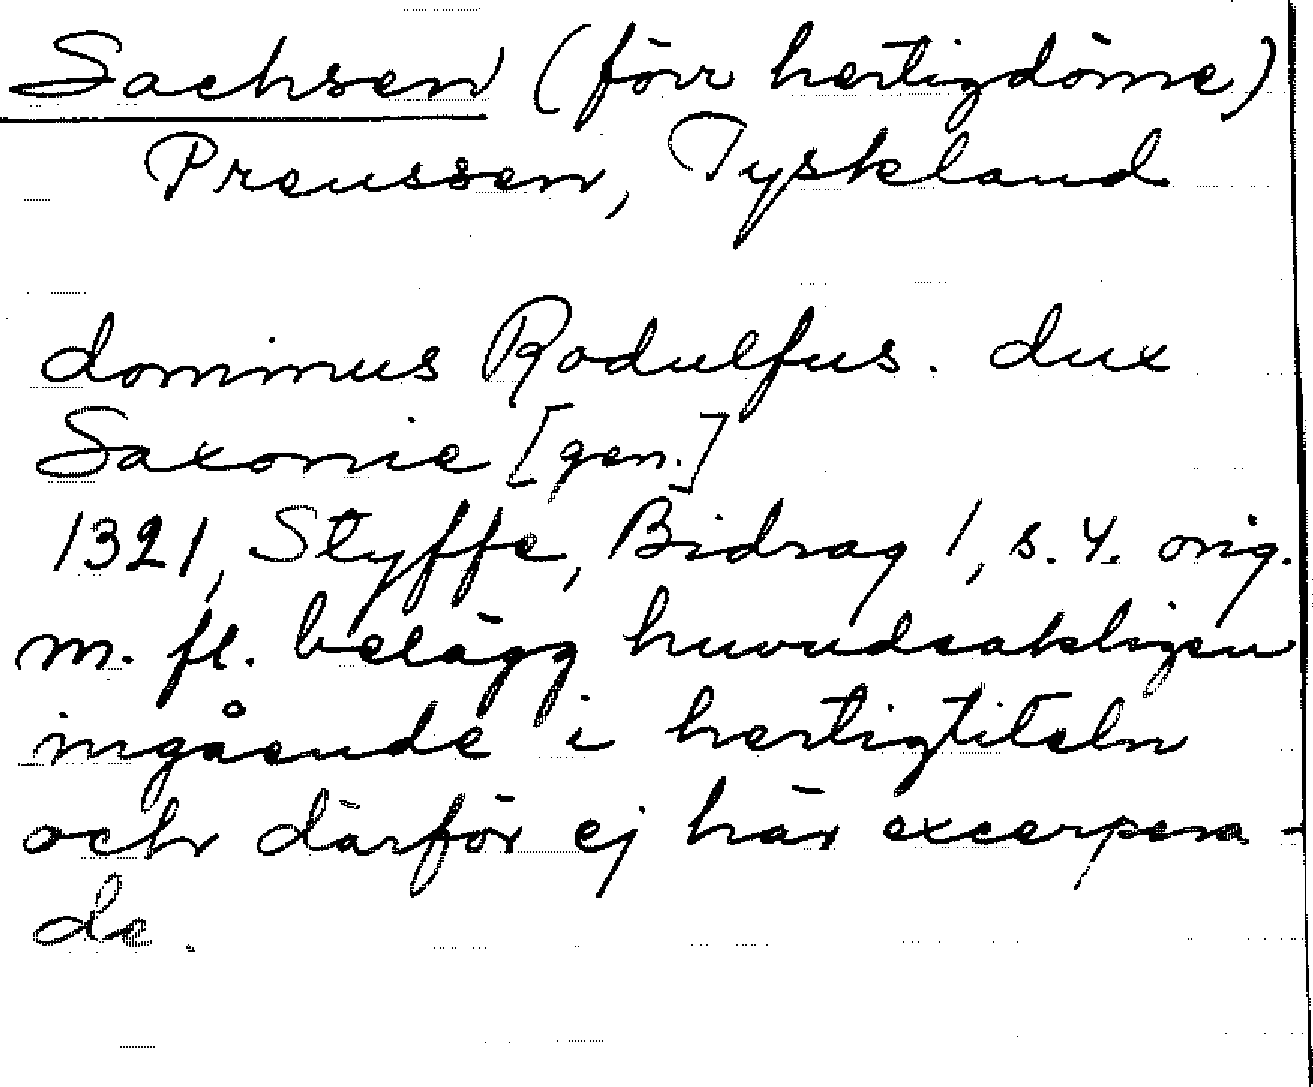 Sachsen (förr hertigdöme)
Preussen, Tyskland
dominus Rodulfus. dux
Saxonie [gen.]
1321, Styffe, Bidrag 1, s. 4. orig.
m. fl. belägg huvudsakligen
ingående i hertigtiteln
och därför ej här excerpera-
de.